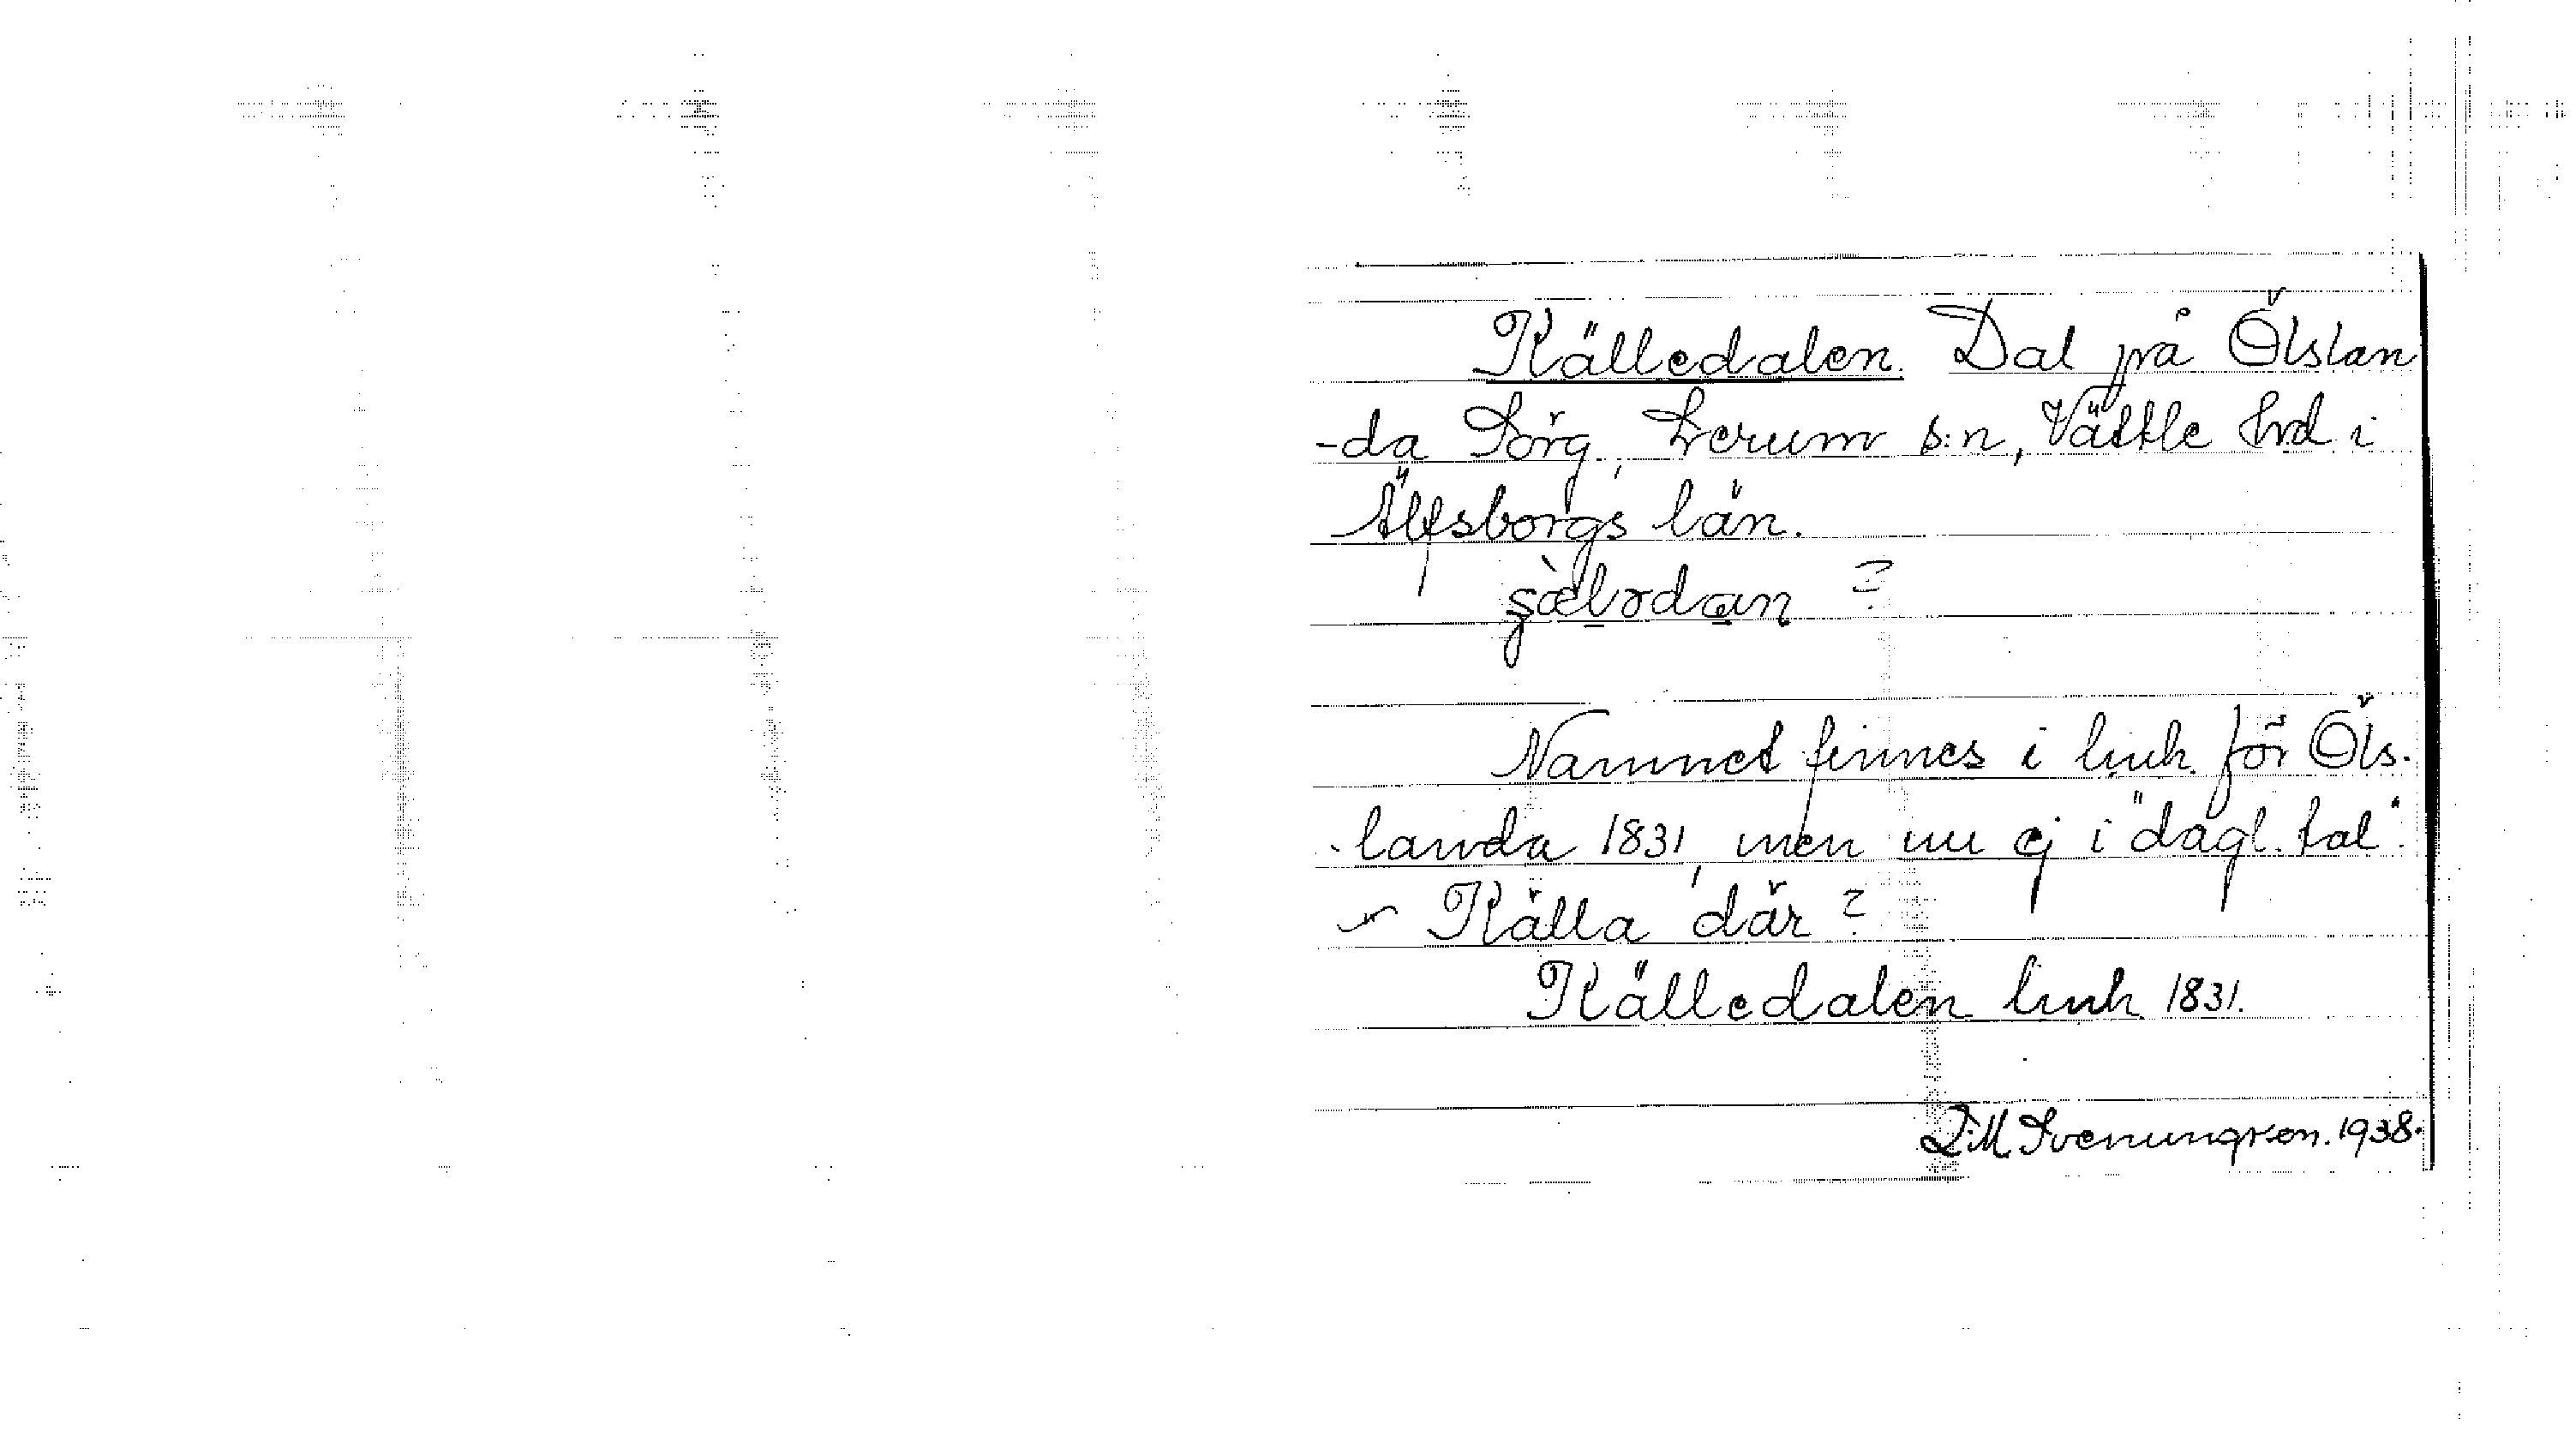 Källedalen. Dal på Ölslan
-da Sörg., Lerum s:n, Vättle hrd i
Älfsborgs län.
?
Namnet finnes i lmh. för Öls-
-landa 1831, men nu ej i "dagl. tal".
- Källa där?
Källedalen lmh. 1831.
D.M. Svenungson. 1938.